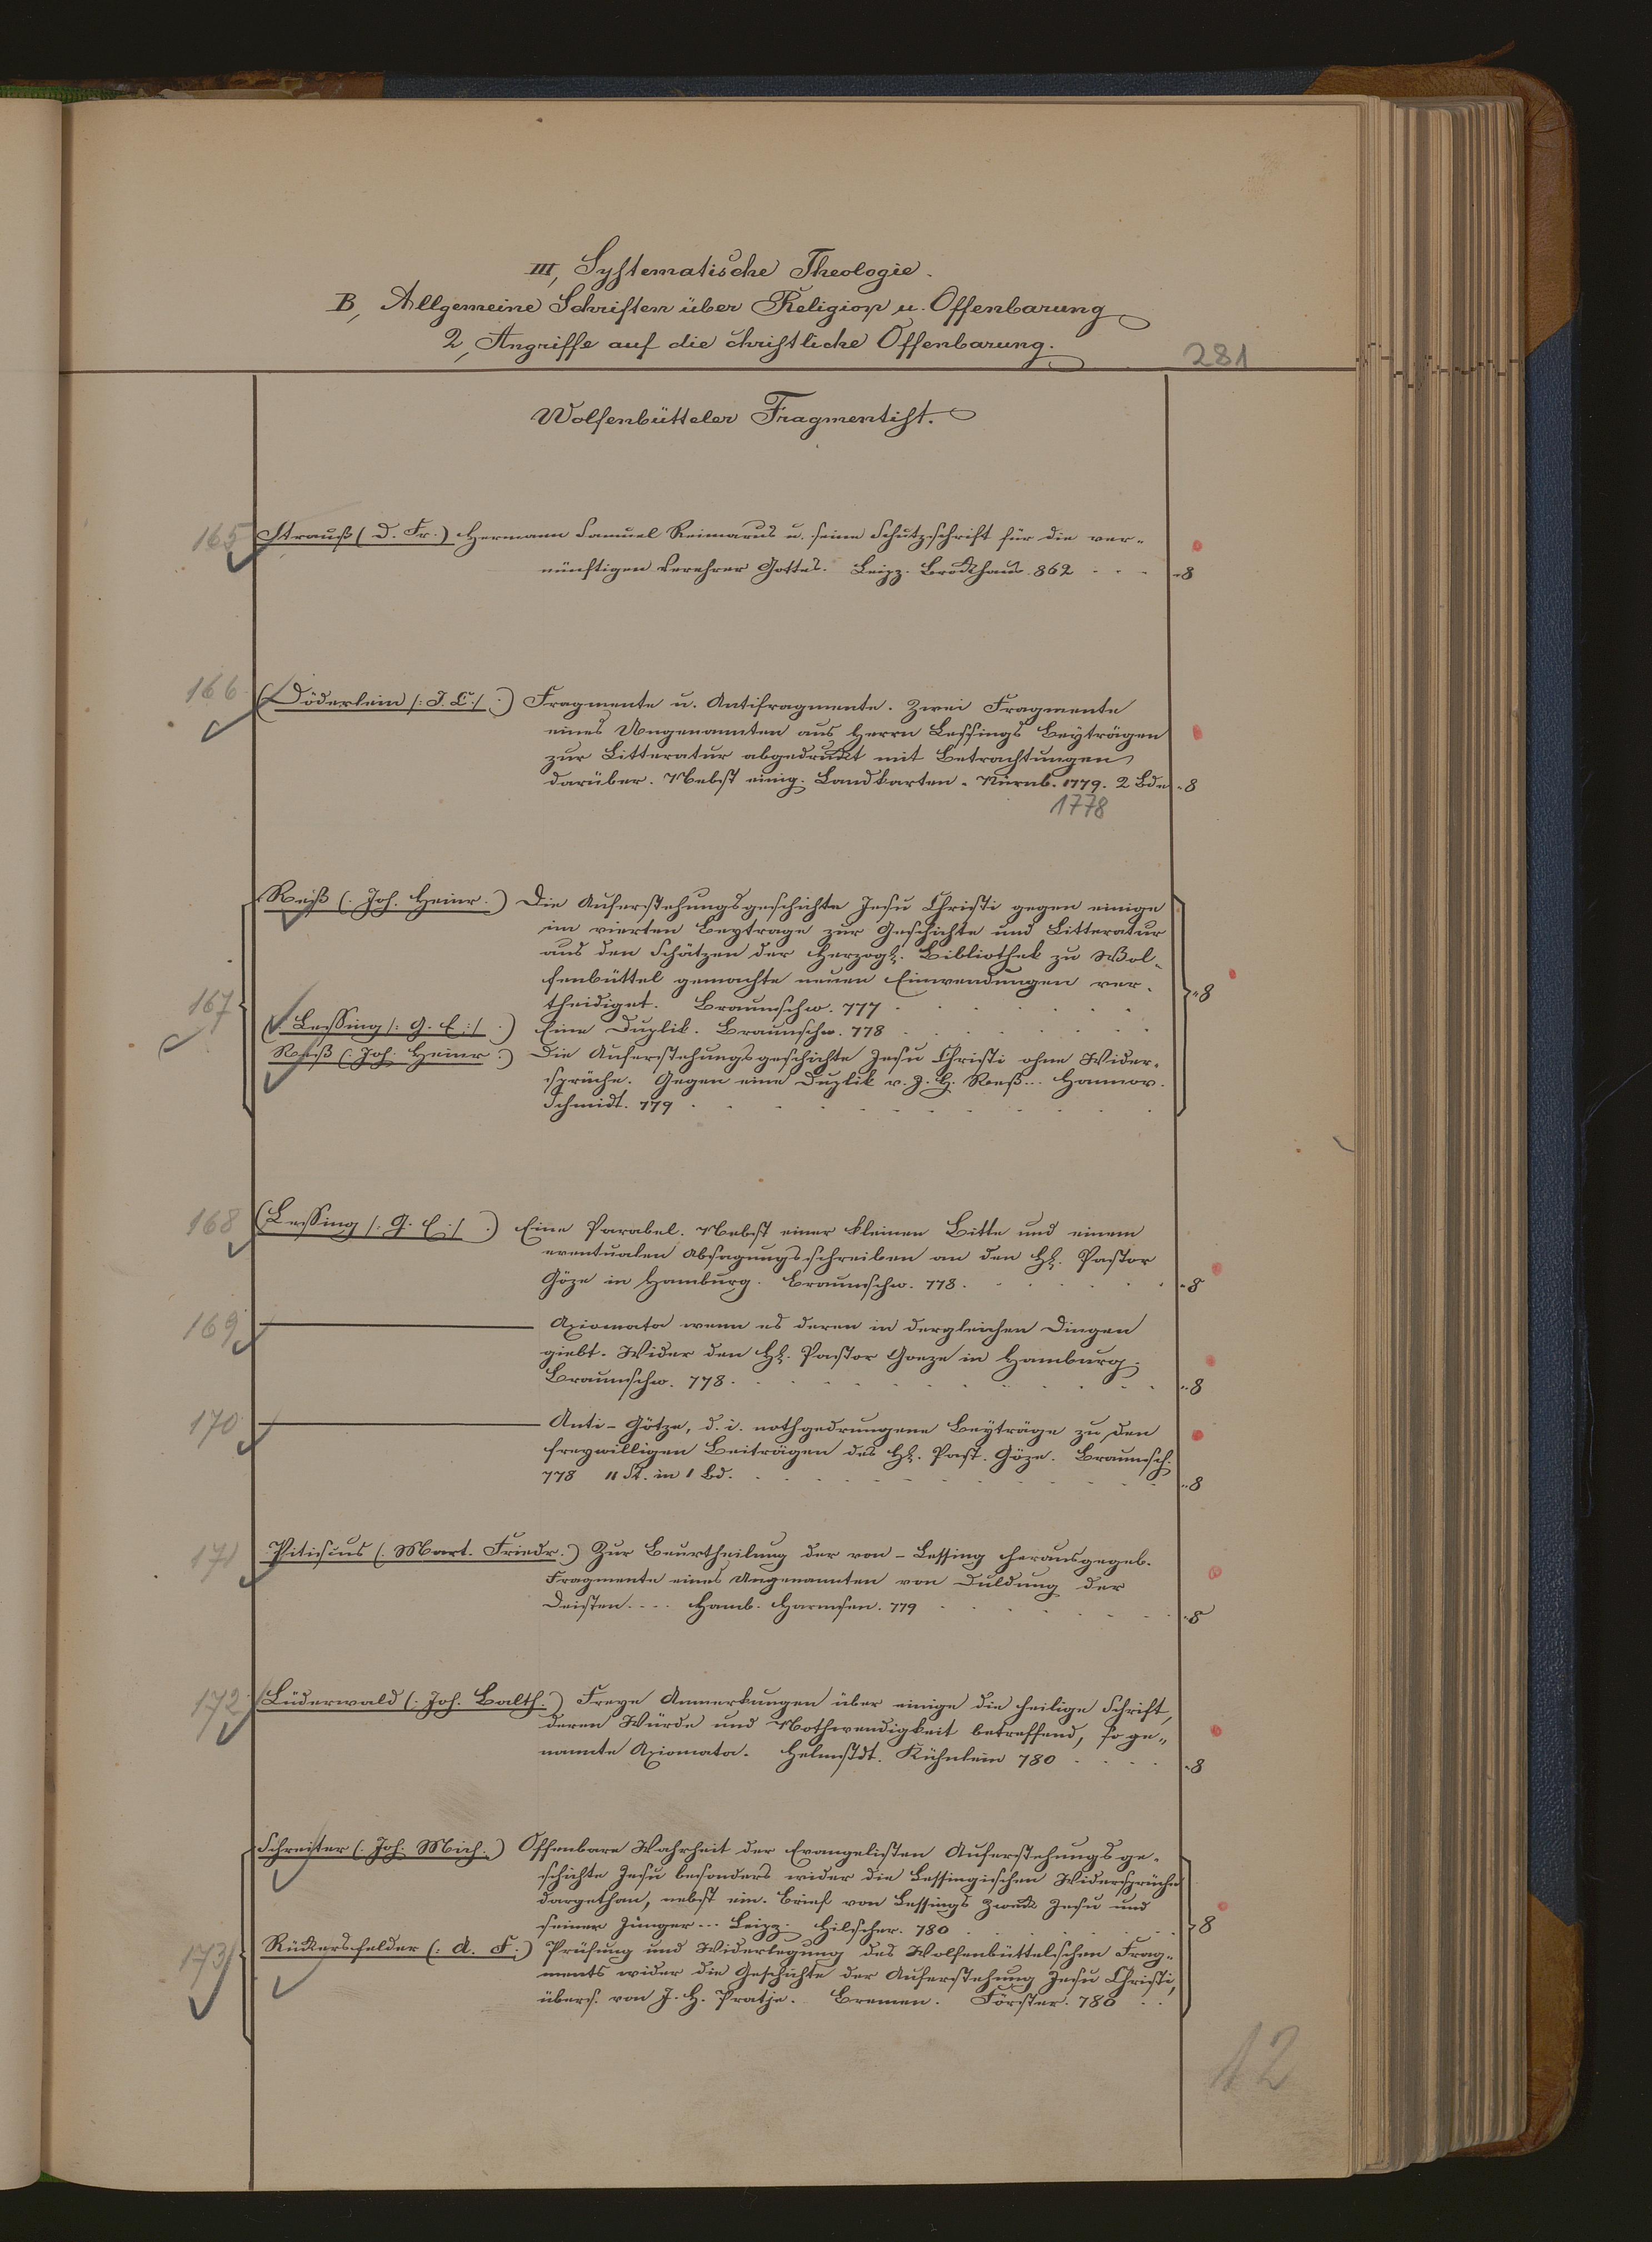 III, Systematische Theologie.
B, Allgemeine Schriften über Religion u. Offenbarung
2, Angriffe auf die christliche Offenbarung.
281
Wolfenbütteler Fragmentist.
165 Strauß (D. Fr.) Hermann Samuel Reimarus u. seine Schutzschrift für die ver-
nünftigen Verehrer Gottes. Leipz. Brockhaus. 862 . . . 8
166 (Döderlein /: J. C :/ .) Fragmente u. Antifragmente. Zwei Fragmente
eines Ungenannten aus Herrn Lessings Beyträgen
zur Litteratur abgedruckt mit Betrachtungen
darüber. Nebst einig. Landkarten. Nürnb. 1779. 2 Bde 8
1778
Reß (: Joh. Heinr. :) Die Auferstehungsgeschichte Jesu Christi gegen einige
im vierten Beytrage zur Geschichte und Litteratur
aus den Schätzen der Herzogl. Bibliothek zu Wol-
fenbüttel gemachte neuen Einwendungen ver-
167 theidiget. Braunschw. 777 . 8
(Lessing /: G. E :/ .) Eine Duplik. Braunschw. 778
Reß (: Joh. Heinr. :) Die Auferstehungsgeschichte Jesu Christi ohne Wider-
sprüche. Gegen eine Duplik v. J. H. Reß... Hannov.
Schmidt. 779
168 (Lessing /: G. E :/ .) Eine Parabel. Nebst einer kleinen Bitte und einem
eventualen Absagungsschreiben an den H. Pastor
Göze in Hamburg. Braunschw. 778. 8
169 Axiomata wenn es deren in dergleichen Dingen
giebt. Wider den H. Pastor Goeze in Hamburg.
Braunschw. 778. 8
170 Anti-Götze, d. i. nothgedrungene Beyträge zu den
freywilligen Beiträgen des H. Past. Göze. Braunsch.
778 11 St. in 1 Bd. 8
171 Pitiscus (: Mart. Friedr. :) Zur Beurtheilung der von - Lessing herausgegeb.
Fragmente eines Ungenannten von Duldung der
Deisten.... Hamb. Harmsen. 779 8
172 Lüderwald (: Joh. Balth. :) Freye Anmerkungen über einige die heilige Schrift,
deren Würde und Nothwendigkeit betreffend, so ge-
nannte Axiomata. Helmstdt. Kühnlein 780 8
Schreiter (: Joh. Mich. :) Offenbare Wahrheit der Evangelisten Auferstehungsge-
schichte Jesu besonders wider die Lessingischen Widersprüche
dargethan, nebst ein. Brief von Lessings Zweck Jesu und
seiner Jünger... Leipz. Hilscher. 780 8
173 Rückersfelder (: A. F. :) Prüfung und Widerlegung des Wolfenbüttelschen Frag-
ments wider die Geschichte der Auferstehung Jesu Christi,
übers. von J. H. Pratje. Bremen. Förster. 780
12